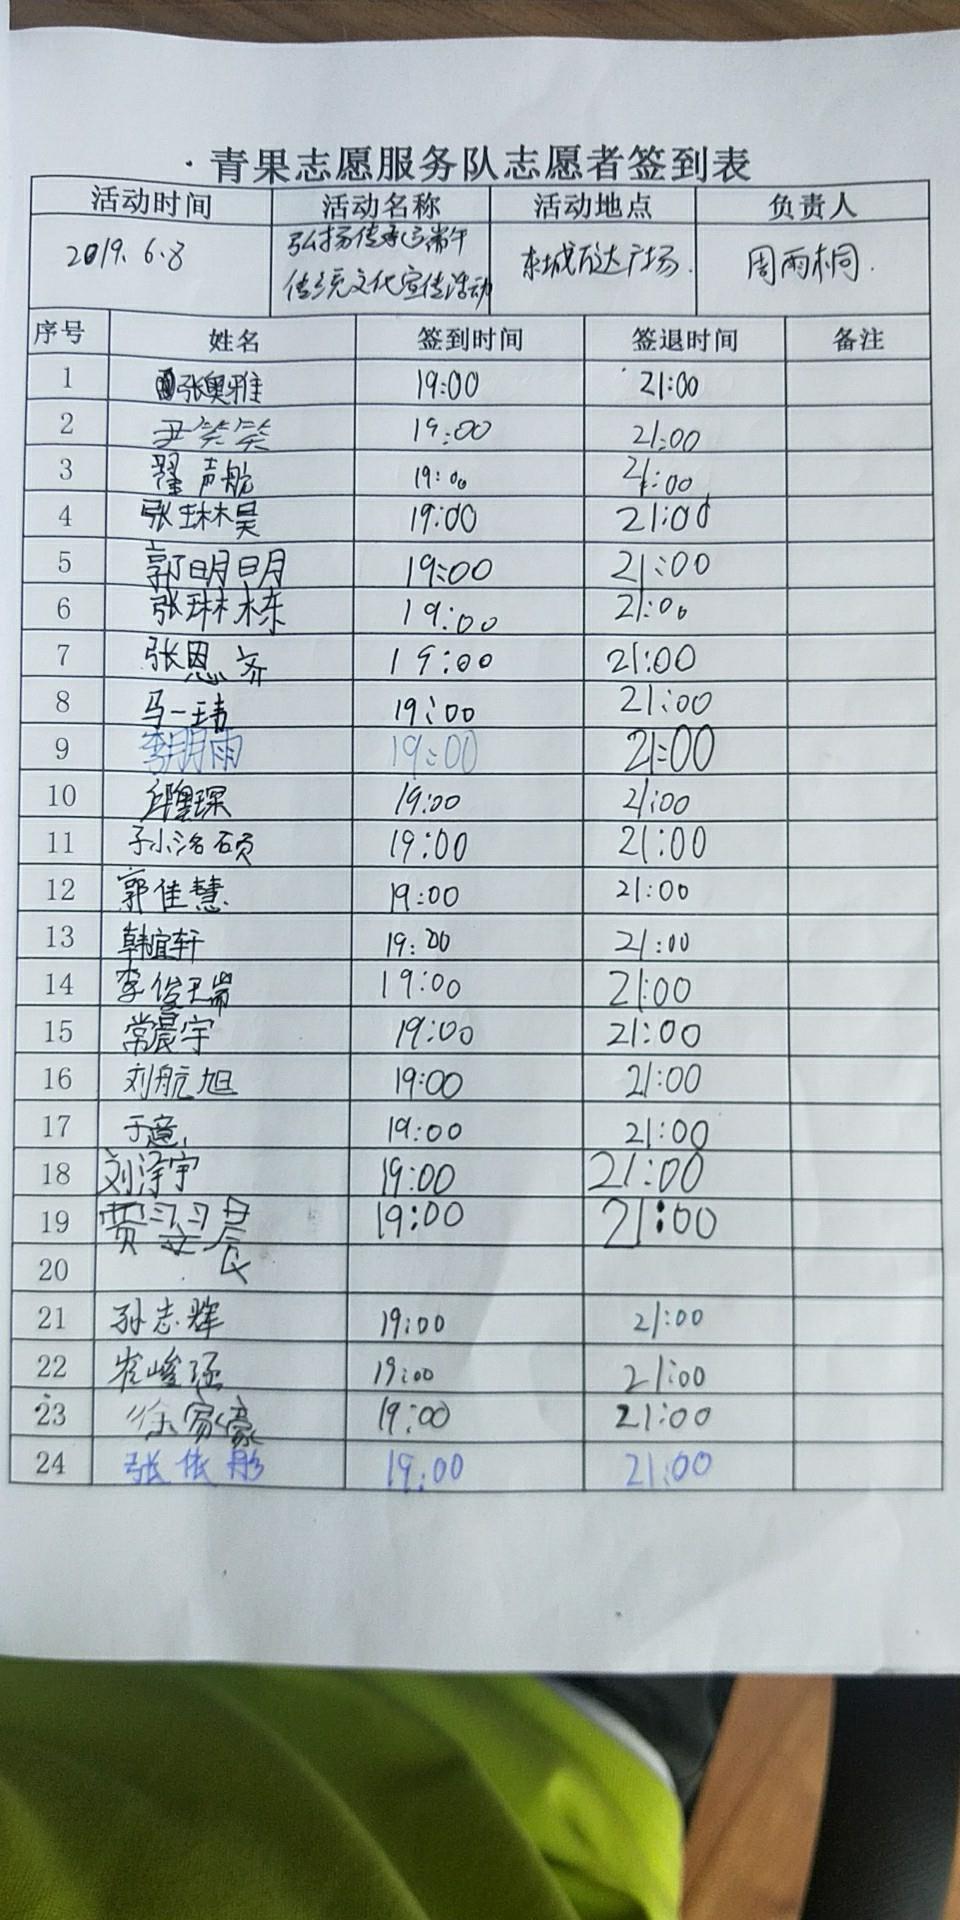 青果志愿服务队志愿者签到表
活动时间 活动名称 活动地点 负责人
2019.6.8 弘扬传承端午 东城万达广场. 周雨桐.
传统文化宣传活动
序号 姓名 签到时间 签退时间 备注
1 张奥雅 19:00 21:00
2 尹笑笑 19:00 21:00
3 翟声航 19:00 21:00
4 张琳昊 19:00 21:00
5 郭明明 19:00 21:00
6 张琳栋 19:00 21:00
7 张恩齐 19:00 21:00
8 马一玮 19:00 21:00
9 李玥雨 19:00 21:00
10 19:00 21:00
11 孙洺硕 19:00 21:00
12 郭佳慧 19:00 21:00
13 韩宜轩 19:00 21:00
14 李俊瑞 19:00 21:00
15 常晨宇 19:00 21:00
16 刘航旭 19:00 21:00
17 于意 19:00 21:00
18 刘泽宇 19:00 21:00
19 19:00 21:00
20
21 孙志辉 19:00 21:00
22 19:00 21:00
23 徐家濠 19:00 21:00
24 张依彤 19:00 21:00